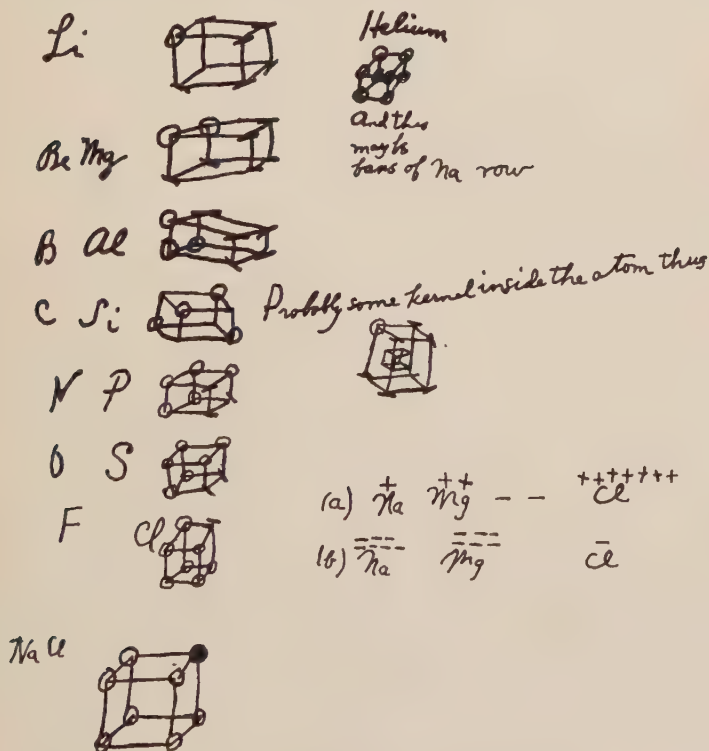 Li
Helium
And this
may be
bans of Na row
Be Mg
B Al
C Si
Probably some kernel inside the atom thus
N P
O S
F Cl
(a) + Na ++ Mg - - +++++++ Cl
(b) ------- Na ------ Mg - Cl
NaCl